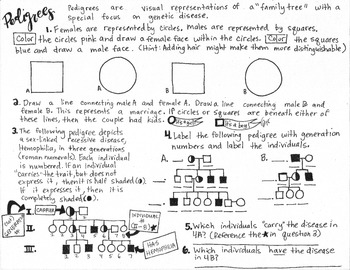 Pedigrees
Pedigrees are visual representations of a "family tree" with a
special focus on genetic disease.
1. Females are represented by circles, males are represented by squares,
Color the circles pink and draw a female face within the circles. Color the squares
blue and draw a male face. (Hint: Adding hair might make them more distinguishable)
A. B.
2. Draw a line connecting male A and female A. Draw a line connecting male B and
female B. This represents a marriage. If circles or squares are beneath either of
these lines, then the couple had kids.
It's a girl! It's a boy!
3. The following pedigree depicts
a sex-linked, recessive disease,
Hemophilia, in three generations
(roman numerals). Each individual
is numbered. If an individual
"carries" the trait, but does not
express it, then it is half shaded
If it expresses it, then it is
completely shaded
CARRIER
INDIVIDUAL
(II-8)
II.
III.
HAS
HEMOPHILIA
4. Label the following pedigree with generation
numbers and label the individuals.
A. B.
5. Which individuals "carry" the disease in
4A? (Reference the ★ in question 3)
6. Which individuals have the disease
in 4B?